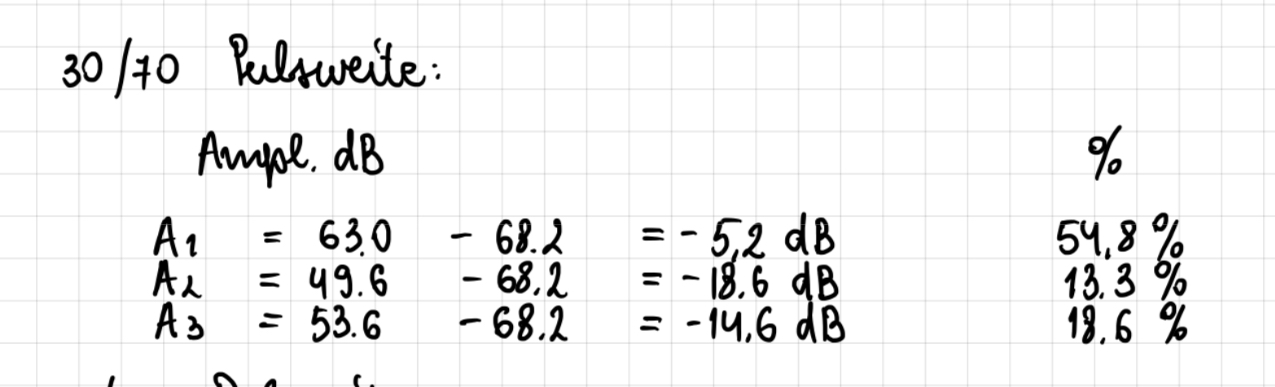 30/70 Pulsweite:
Ampl. dB %
A1 = 63.0 - 68.2 = - 5,2 dB 54,8 %
A2 = 49.6 - 68,2 = - 18,6 dB 13.3 %
A3 = 53.6 - 68.2 = - 14,6 dB 18,6 %